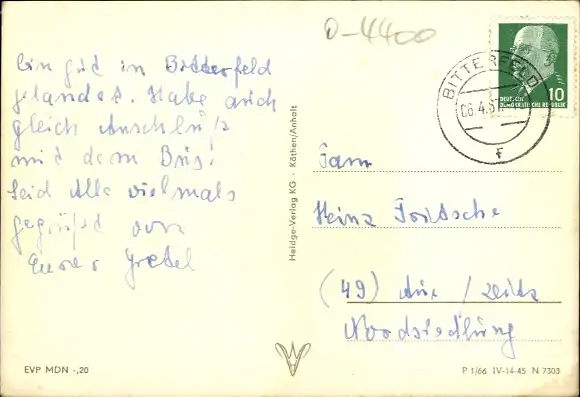 O-4400
Bin gut in Bitterfeld
gelandet. Habe auch
gleich Anschluß
mit dem Bus.
Seid Alle vielmals
gegrüßt von
Eurer Gretel
BITTERFELD
06.4.67
f
DEUTSCHE
DEMOKRATISCHE REPUBLIK
10
Heldge-Verlag KG · Köthen/Anhalt
Fam
Heinz Fritsche
(49) Aue / Zeitz
Nordsiedlung
EVP MDN -,20
P 1/66 IV-14-45 N 7303